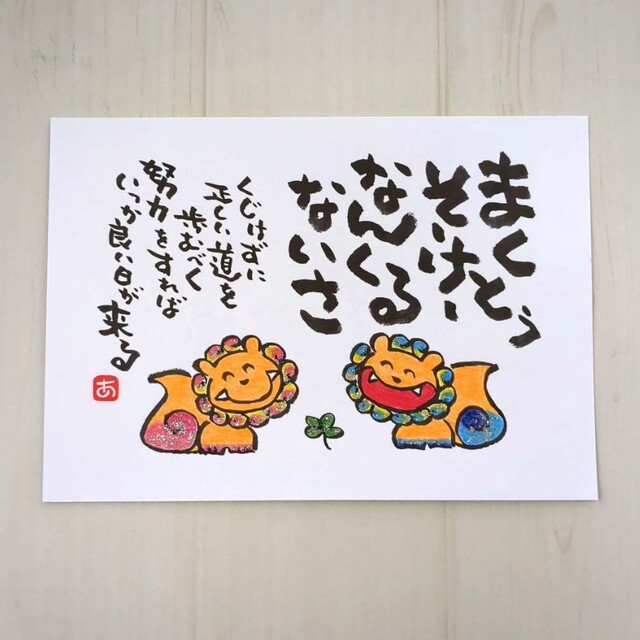 まくとぅ
そーけー
なんくる
ないさ
くじけずに
正しい道を
歩むべく
努力をすれば
いつか良い日が来る
あ